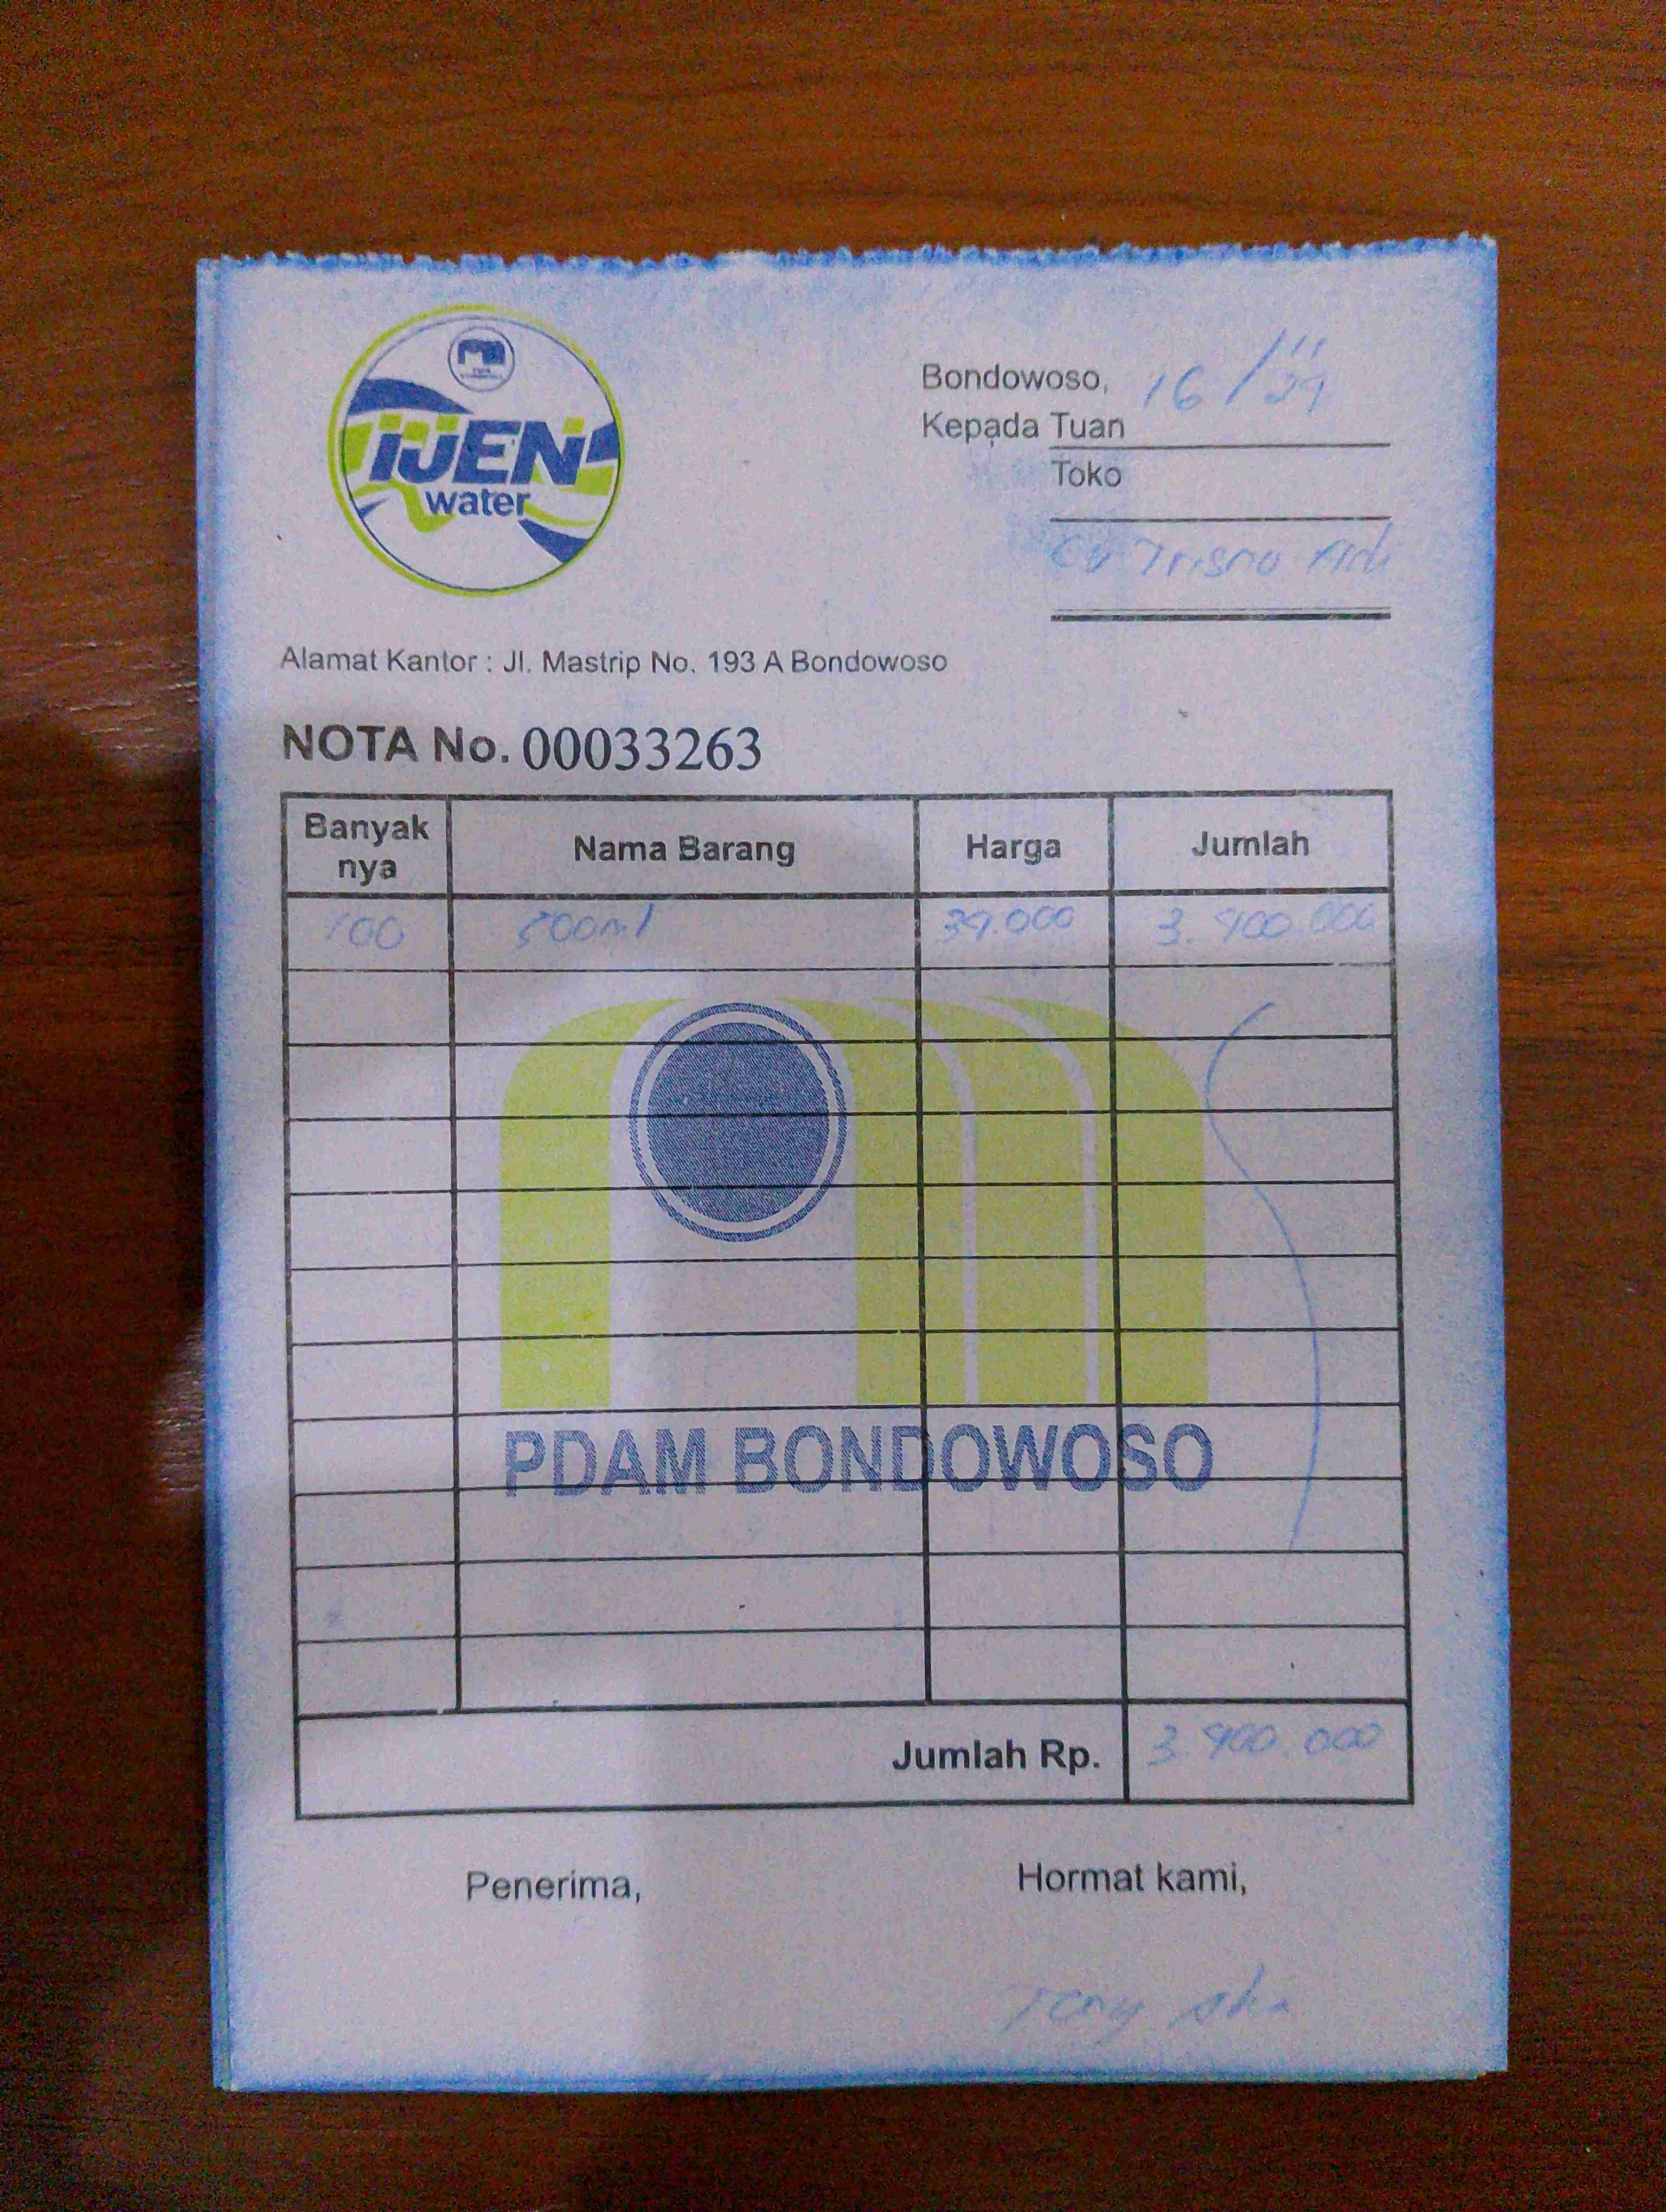 IJEN
water
Bondowoso, 16/11
Kepada Tuan
Toko
CV Trisno Adi
Alamat Kantor : Jl. Mastrip No. 193 A Bondowoso
NOTA No. 00033263
Banyak nya Nama Barang Harga Jumlah
100 500ml 39.000 3.900.000
PDAM BONDOWOSO
Jumlah Rp. 3.900.000
Penerima, Hormat kami,